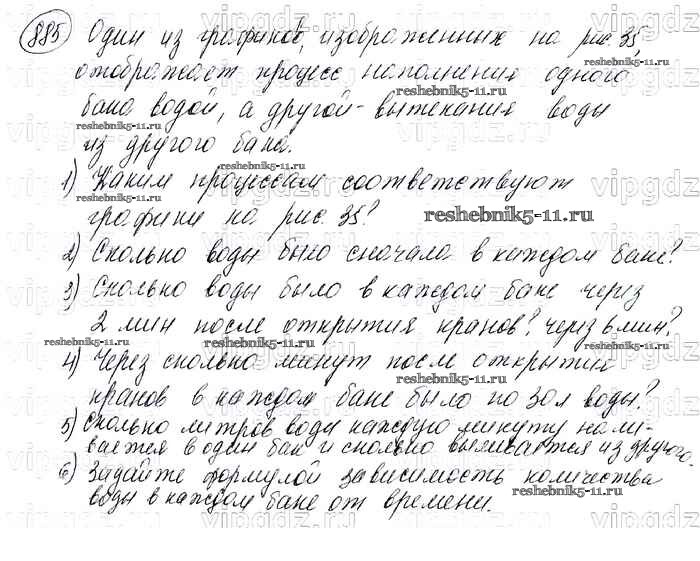 885 Один из графиков, изображенных на рис. 35,
отображает процесс наполнения одного
бака водой, а другой - вытекания воды
из другого бака.
1) Каким процессам соответствуют
графики на рис. 35?
2) Сколько воды было сначала в каждом баке?
3) Сколько воды было в каждом баке через
2 мин после открытия кранов? через 6 мин?
4) Через сколько минут после открытия
кранов в каждом баке было по 30 л воды?
5) Сколько литров воды каждую минуту нали-
вается в один бак и сколько выливается из другого.
6) Задайте формулой зависимость количества
воды в каждом баке от времени.
reshebnik5-11.ru
vipgdz